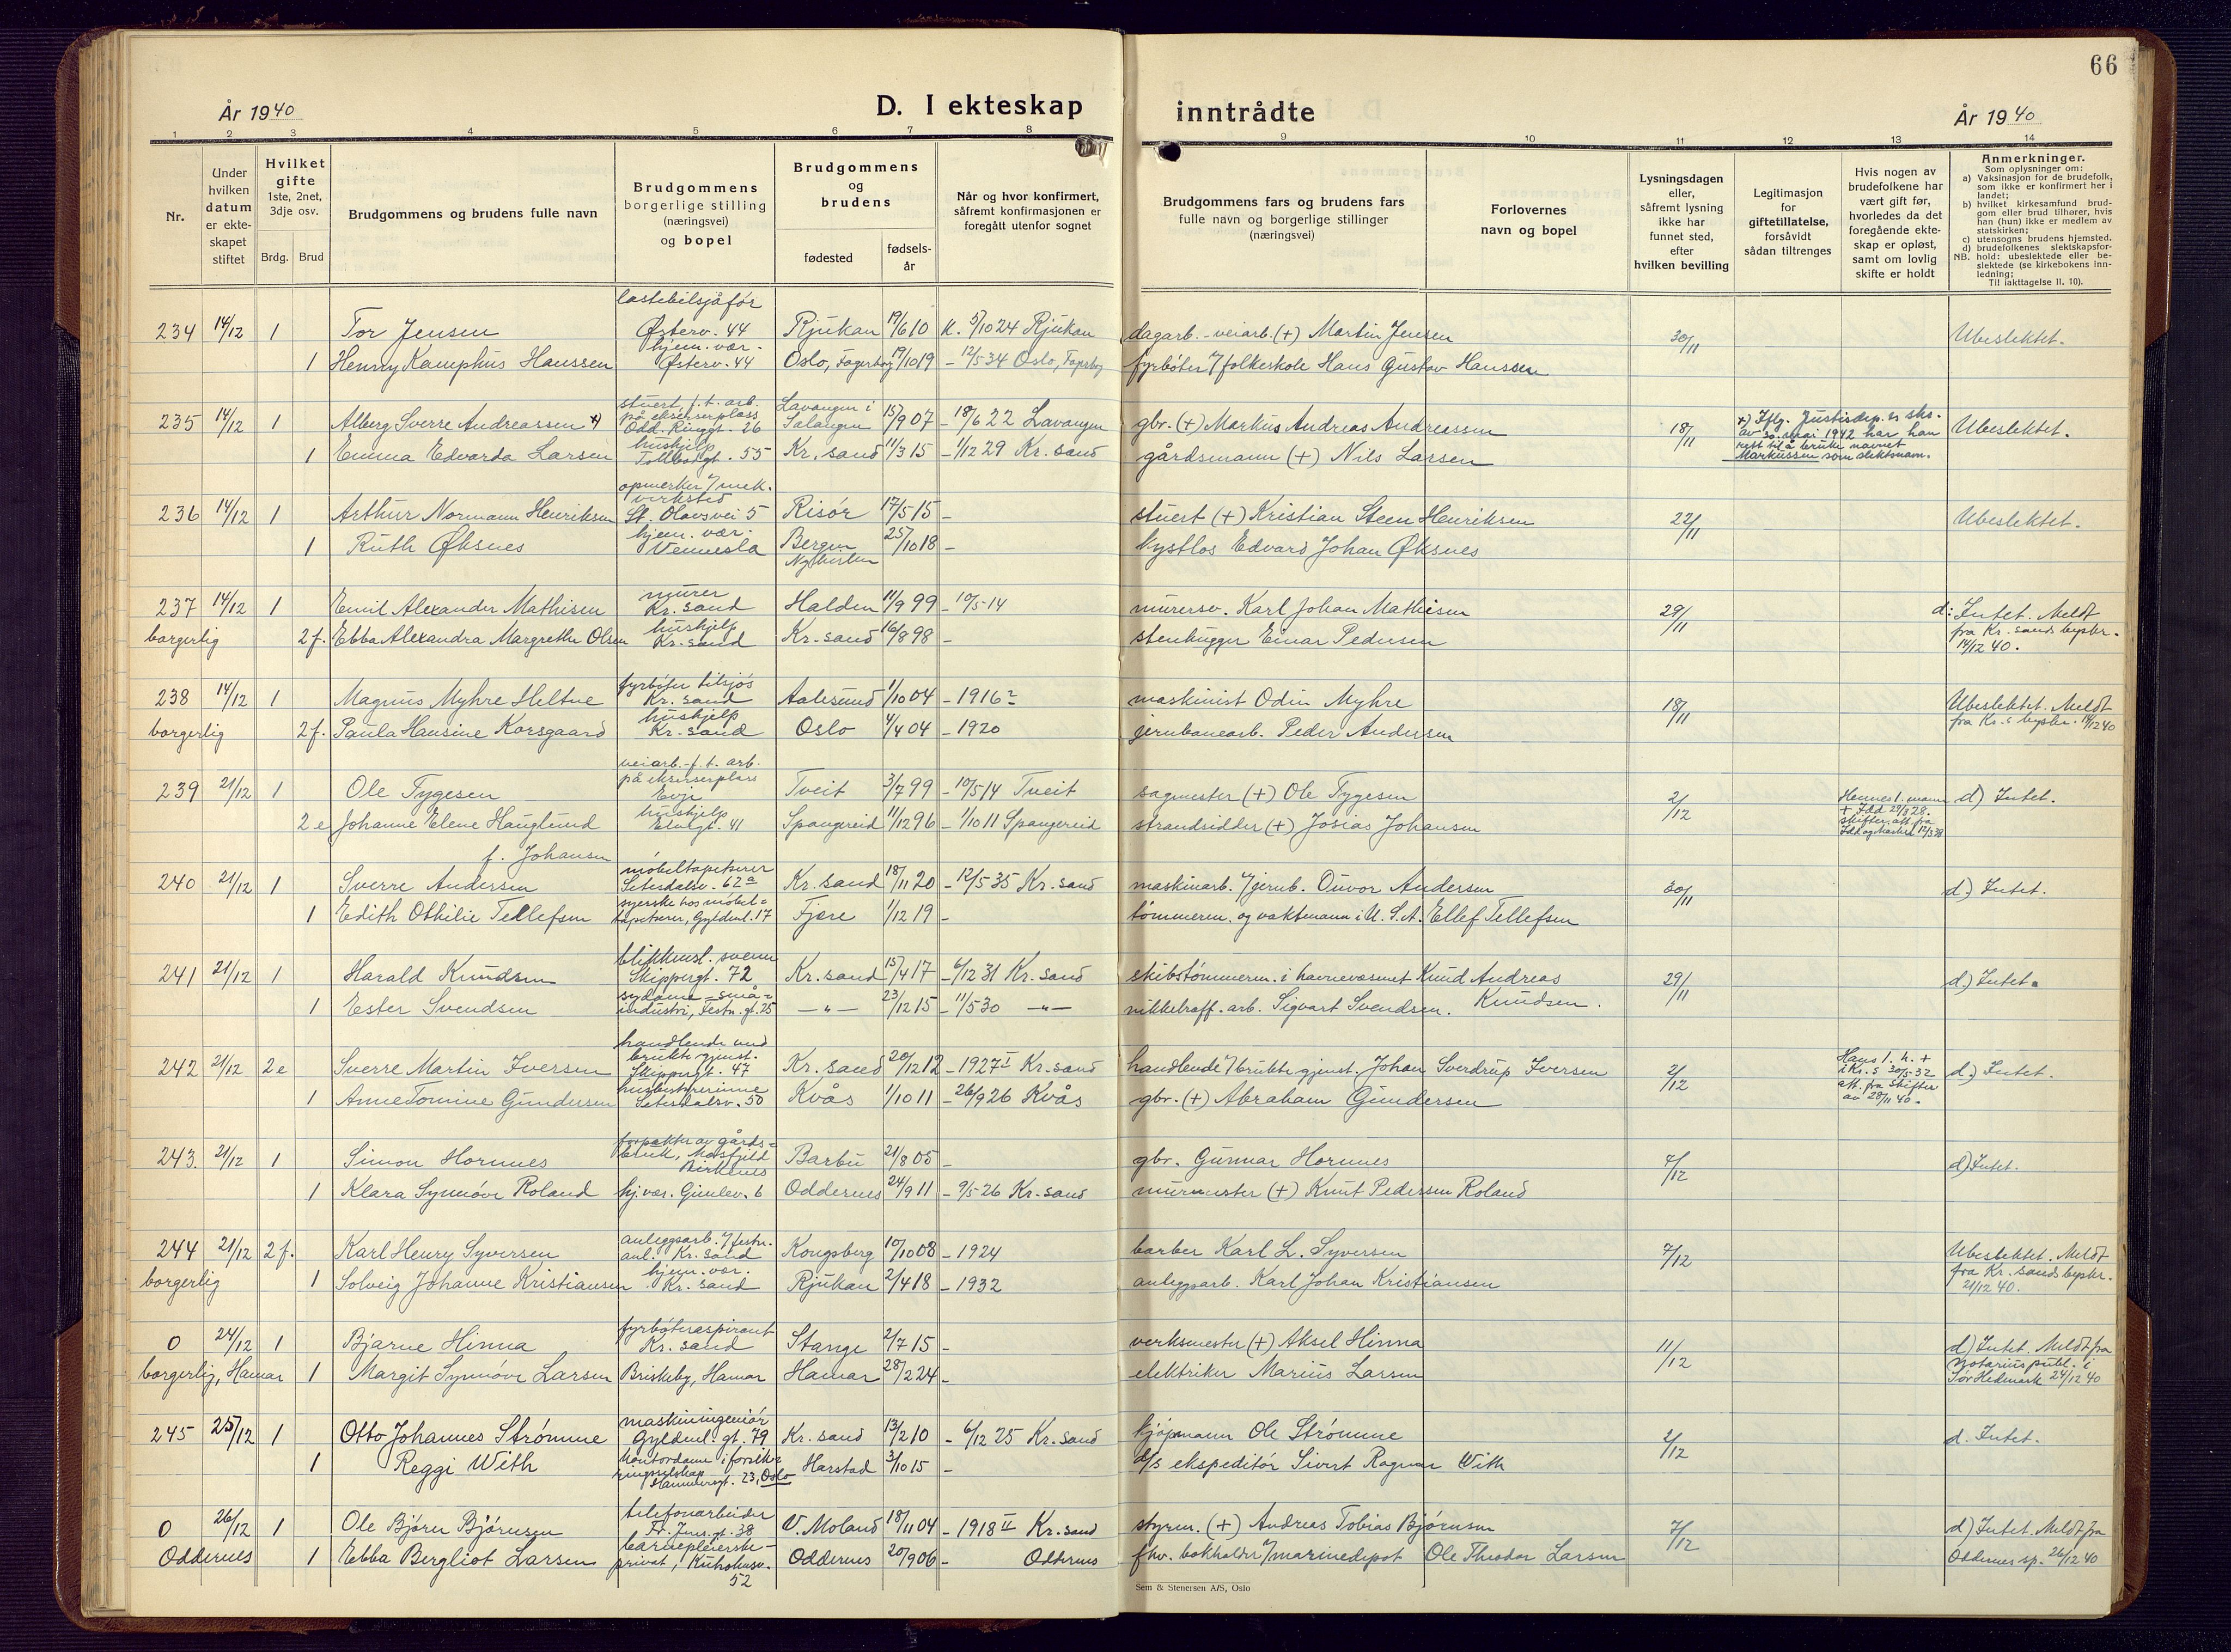 66
År 1940
D. I ekteskap inntrådte
År 1940
1 2 3 4 5 6 7 8 9 10 11 12 13 14
Nr.
Under hvilken datum er ekte-skapet stiftet
Hvilket gifte 1ste, 2net, 3dje osv.
Brdg. Brud
Brudgommens og brudens fulle navn
Brudgommens borgerlige stilling (næringsvei) og bopel
Brudgommens og brudens
fødested
fødsels-år
Når og hvor konfirmert, såfremt konfirmasjonen er foregått utenfor sognet
Brudgommens fars og brudens fars fulle navn og borgerlige stillinger (næringsvei)
Forlovernes navn og bopel
Lysningsdagen eller, såfremt lysning ikke har funnet sted, efter hvilken bevilling
Legitimasjon for giftetillatelse, forsåvidt sådan tiltrenges
Hvis nogen av brudefolkene har vært gift før, hvorledes da det foregående ekte-skap er opløst, samt om lovlig skifte er holdt
Anmerkninger.
Som oplysninger om:
a) Vaksinasjon for de brudefolk, som ikke er konfirmert her i landet;
b) hvilket kirkesamfund brud-gom eller brud tilhører, hvis han (hun) ikke er medlem av statskirken;
c) utensogns brudens hjemsted.
d) brudefolkenes slektskapsfor-
NB. hold: ubeslektede eller be-slektede (se kirkebokens inn-ledning;
Til iakttagelse II. 10).
lastebilsjåfør
234 14/12 1 Tor Jensen Østerv. 44 Rjukan 17/6 10 K. 5/10 24 Rjukan dagarb. - veiarb. (+) Martin Jensen 30/11 Ubeslektet.
hjem. vær.
1 Henny Kamphus Hanssen Østerv. 44 Oslo, Fagerborg 19/10 19 - 12/5 34 Oslo, Fagerborg fyrbøter v/ folkeskole Hans Gustav Hanssen
stuert, f. t. arb. på ekserserplass
235 14/12 1 Alberg Sverre Andreassen x) Odd. Ringgt. 26 Lavangen i Salangen 15/9 07 - 18/6 22 Lavangen gbr. (+) Markus Andreas Andreassen 18/11 x) Iflg. Justisdep.s skr. av 30. mai 1942 har han rett til å bruke navnet Markussen som slektsnavn. Ubeslektet.
hushjelp
1 Emma Edvarda Larsen Tollbodgt. 55 Kr. sand 11/3 15 - 1/12 29 Kr. sand gårdsmann (+) Nils Larsen
opmerker v/ mek. verksted
236 14/12 1 Arthur Normann Henriksen St. Olavsvei 5 Risør 17/5 15 - stuert (+) Kristian Steen Henriksen 22/11 Ubeslektet.
hjem. vær
1 Ruth Øksnes Vennesla Bergen Nykirken 25/10 18 - kystlos Edvard Johan Øksnes
murer
237 14/12 1 Emil Alexander Mathisen Kr. sand Halden 11/9 99 - 10/5 14 murersv. Karl Johan Mathisen 29/11 d: Intet. Meldt fra Kr. sands byskr. 14/12 40.
hushjelp
borgerlig 2 f. Ebba Alexandra Margrethe Olsen Kr. sand Kr. sand 16/8 98 - stenhugger Einar Pedersen
fyrbøter tilsjøs
238 14/12 1 Magnus Myhre Heltne Kr. sand Aalesund 1/10 04 - 1916? maskinist Odin Myhre 18/11 Ubeslektet. Meldt fra Kr. s byskr. 14/12 40
hushjelp
borgerlig 2 f. Paula Hansine Korsgaard Kr. sand Oslo 4/4 04 - 1920 jernbanearb. Peder Andersen
veiarb. f. t. arb. på ekserserplass
239 21/12 1 Ole Tygesen Evje Tveit 3/7 99 - 10/5 14 Tveit sagmester (+) Ole Tygesen 2/12 Hennes 1. mann + Idd 29/3 28. skifteratt. fra Idd og Marker 12/3 38 d) Intet.
hushjelp
2 e Johanne Elene Hauglund Elvegt. 41 Spangereid 11/12 96 - 1/10 11 Spangereid strandsidder (+) Josias Johansen
f. Johansen
møbeltapetserer
240 21/12 1 Sverre Andersen Setesdalsv. 62 a Kr. sand 18/11 20 - 12/5 35 Kr. sand maskinarb. v/ jernb. Ouvor Andersen 30/11 d.) Intet.
syerske hos møbel-
1 Edith Othilie Tellefsen tapetserer, Gyldenl. 17 Fjære 1/12 19 - tømmerm. og vaktmann i U.S.A. Ellef Tellefsen
blikkensl. svenn
241 21/12 1 Harald Knudsen Skippergt. 72 Kr. sand 15/4 17 - 6/12 31 Kr. sand skibstømmerm. i havnevæsnet Knud Andreas Knudsen. 29/11 d.) Intet.
sydame - små-
1 Ester Svendsen industri, Festn. gt. 25 - " - 23/12 15 - 11/5 30 - " - nikkelraff. arb. Sigvart Svendsen.
handlende med brukte gjenst.
242 21/12 2 e Sverre Martin Iversen Skippergt. 47 Kr. sand 20/12 12 - 1927 I Kr. sand handlende v/ brukte gjenst. Johan Sverdrup Iversen 2/12 Hans 1. h. + i Kr. s 30/5 32 att. fra skifter av 28/11 40. d.) Intet.
husbestyrerinne
1 Anne Tomine Gundersen Setesdalsv. 50 Kvås 1/10 11 - 26/9 26 Kvås gbr. (+) Abraham Gundersen
forpakter av gårds-
243. 21/12 1 Simon Hornnes bruk, Mosfjeld Birkenes Barbu 21/8 05 - gbr. Gunnar Hornnes 7/12 d) Intet.
1 Klara Synnøve Roland hj. vær. Gimlev. 6 Oddernes 24/9 11 - 9/5 26 Kr. sand murmester (+) Knut Pedersen Roland
anleggsarb. v/ festn.
244 21/12 2 f. Karl Henry Syversen anl. Kr. sand Kongsberg 10/10 08 - 1924 barber Karl L. Syversen 7/12 Ubeslektet. Meldt fra Kr. sands byskr. 21/12 40.
hjem. vær.
borgerlig 1 Solveig Johanne Kristiansen Kr. sand Rjukan 2/4 18 - 1932 anleggsarb. Karl Johan Kristiansen
fyrbøteraspirant
0 24/12 1 Bjarne Hinna Kr. sand Stange 2/7 15 - verksmester (+) Aksel Hinna 11/12 d) Intet. Meldt fra Notarius publ. i Sør Hedmark 24/12 40
borgerlig, Hamar 1 Margit Synnøve Larsen Briskeby, Hamar Hamar 28/2 24 - elektriker Marius Larsen
maskiningeniør
245 25/12 1 Otto Johannes Strømme Gyldenl. gt. 79 Kr. sand 13/2 10 - 6/12 25 Kr. sand kjøpmann Ole Strømme 2/12 d. Intet.
kontordame i forsik-
1 Reggi With ringsselskap 23, Oslo Harstad 3/10 15 - d/s ekspeditør Sivert Ragnar With
telefonarbeider
0 26/12 1 Ole Bjørn Bjørnsen Fr. Jens. gt. 38 V. Moland 18/11 04 - 1918 II Kr. sand styrm. (+) Andreas Tobias Bjørnsen 7/12 d) Intet. Meldt fra Oddernes sp. 26/12 40
barnepleierske -
Oddernes 1 Ebba Bergliot Larsen privat, Kuholmsv. 52 Oddernes 20/9 06 - Oddernes fhv. bokholder v/ marinedepot Ole Theodor Larsen
Sem & Stenersen A/S, Oslo